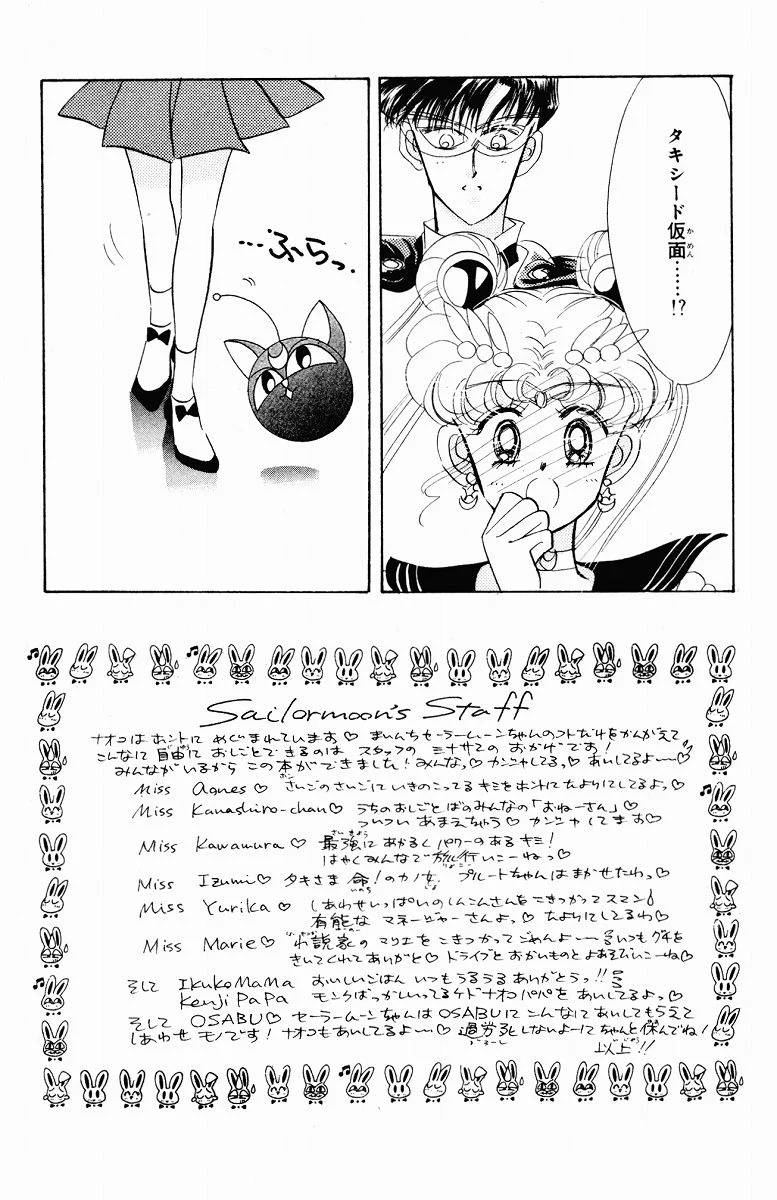 タキシード仮面……!?
かめん
…ふらっ
Sailormoon's Staff
ナオコはホントに めぐまれています♡ まいんちセーラームーンちゃんのコトだけをかんがえて
こんなに自由に おしごとできるのは スタッフの ミナサマの おかげです!
みんながいるから この本ができました! みんなっ♡ カンシャしてるっ♡ あいしてるよ〜♡
Miss Agnes♡ さいごのさいごに いきのこってる キミをホントに たよりにしてるっ♡
Miss Kanashiro-chan♡ うちのおしごとばのみんなの「おねーさん」♡
ついつい あまえちゃう♡ カンシャしてます♡
Miss Kawamura♡ 最強に あかるく パワーのある キミ!
はやくみんなで 旅行 いこーねっ♡
Miss Izumi♡ タキさま 命!のカノ女 プルートちゃんは まかせたわっ♡
Miss Yurika♡ しあわせいっぱいの しんこんさんを こきつかって スマン
有能な マネージャーさんよっ♡ たよりにしてるわ♡
Miss Marie♡ 小説家の マリエを こきつかって ごめんよ〜 いつも グチを
きいてくれて ありがと♡ ドライブと おかいものと よあそびいこーね♡
そして IkukoMaMa おいしいごはん いつも うるうる ありがとうっ!!
KenjiPaPa モンクばっかしいってるケド ナオコ パパを あいしてるよ♡
そして OSABU♡ セーラームーンちゃんは OSABUに こんなに あいしてもらえて
しあわせ モノです! ナオコも あいしてるよ〜♡ 過労死しないよーに ちゃんと 休んでね!
以上!!